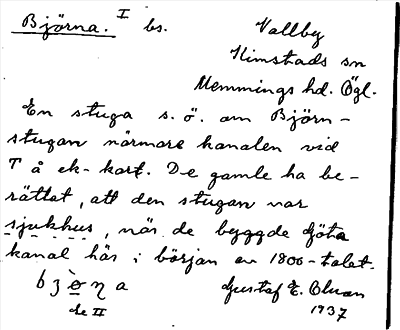 Björna. I bs. Vallby
Kimstads sn
Memmings hd. Ögl.
En stuga s. ö. om Björn-
stugan närmare kanalen vid
T å ek-kart. De gamle ha be-
rättat, att den stugan var
sjukhus, när de byggde Göta
kanal här i början av 1800-talet.
Gustaf E. Olsson
de II
1937